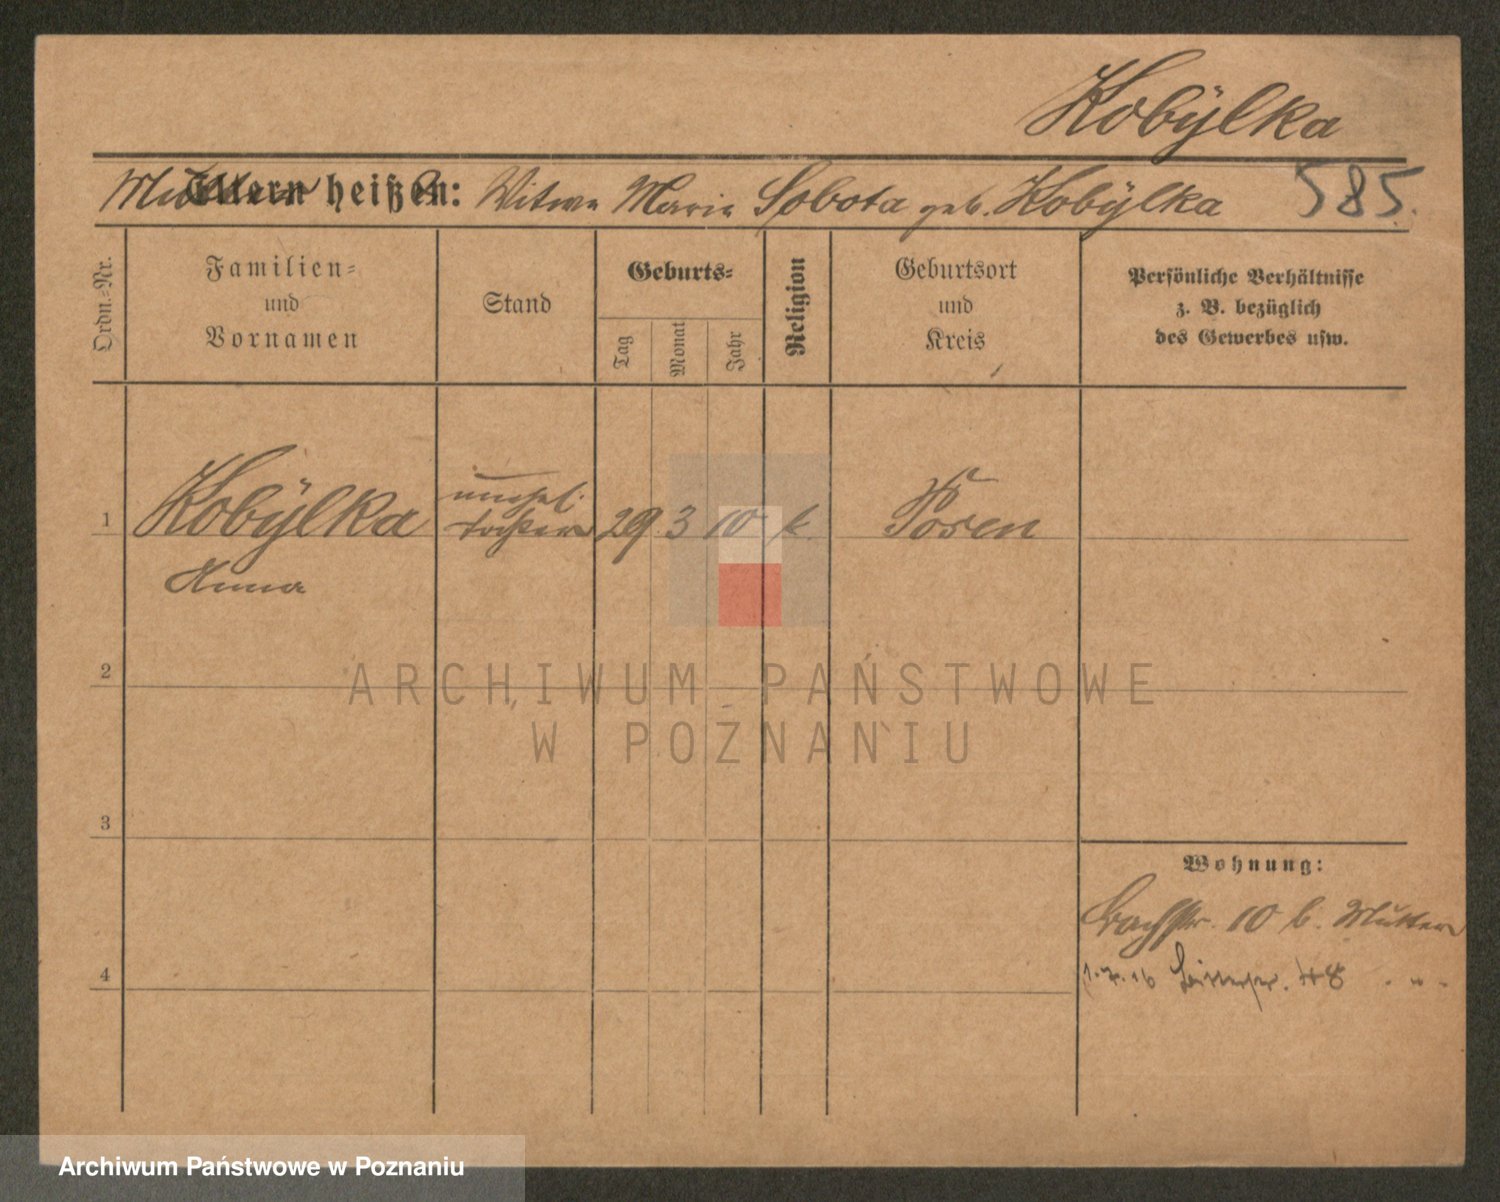 Kobÿlka
Mutter heißt: Witwe Maria Sobota geb. Kobÿlka 585.
Ordn.=Nr.
Familien=
und
Vornamen
Stand
Geburts=
Tag
Monat
Jahr
Religion
Geburtsort
und
Kreis
Persönliche Verhältnisse
z. B. bezüglich
des Gewerbes usw.
1 Kobÿlka unehel. 29 3 10 k. Posen
Tochter
Anna
2
3
4
Wohnung:
Bachstr. 10 b. Mutter
1.7.16 48 " "
ARCHIWUM PAŃSTWOWE
W POZNANIU
Archiwum Państwowe w Poznaniu